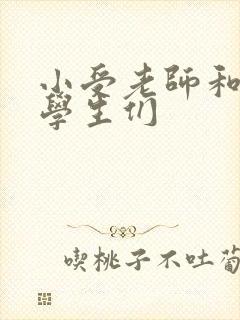 小受老師和
學生们
喫桃子不吐葡